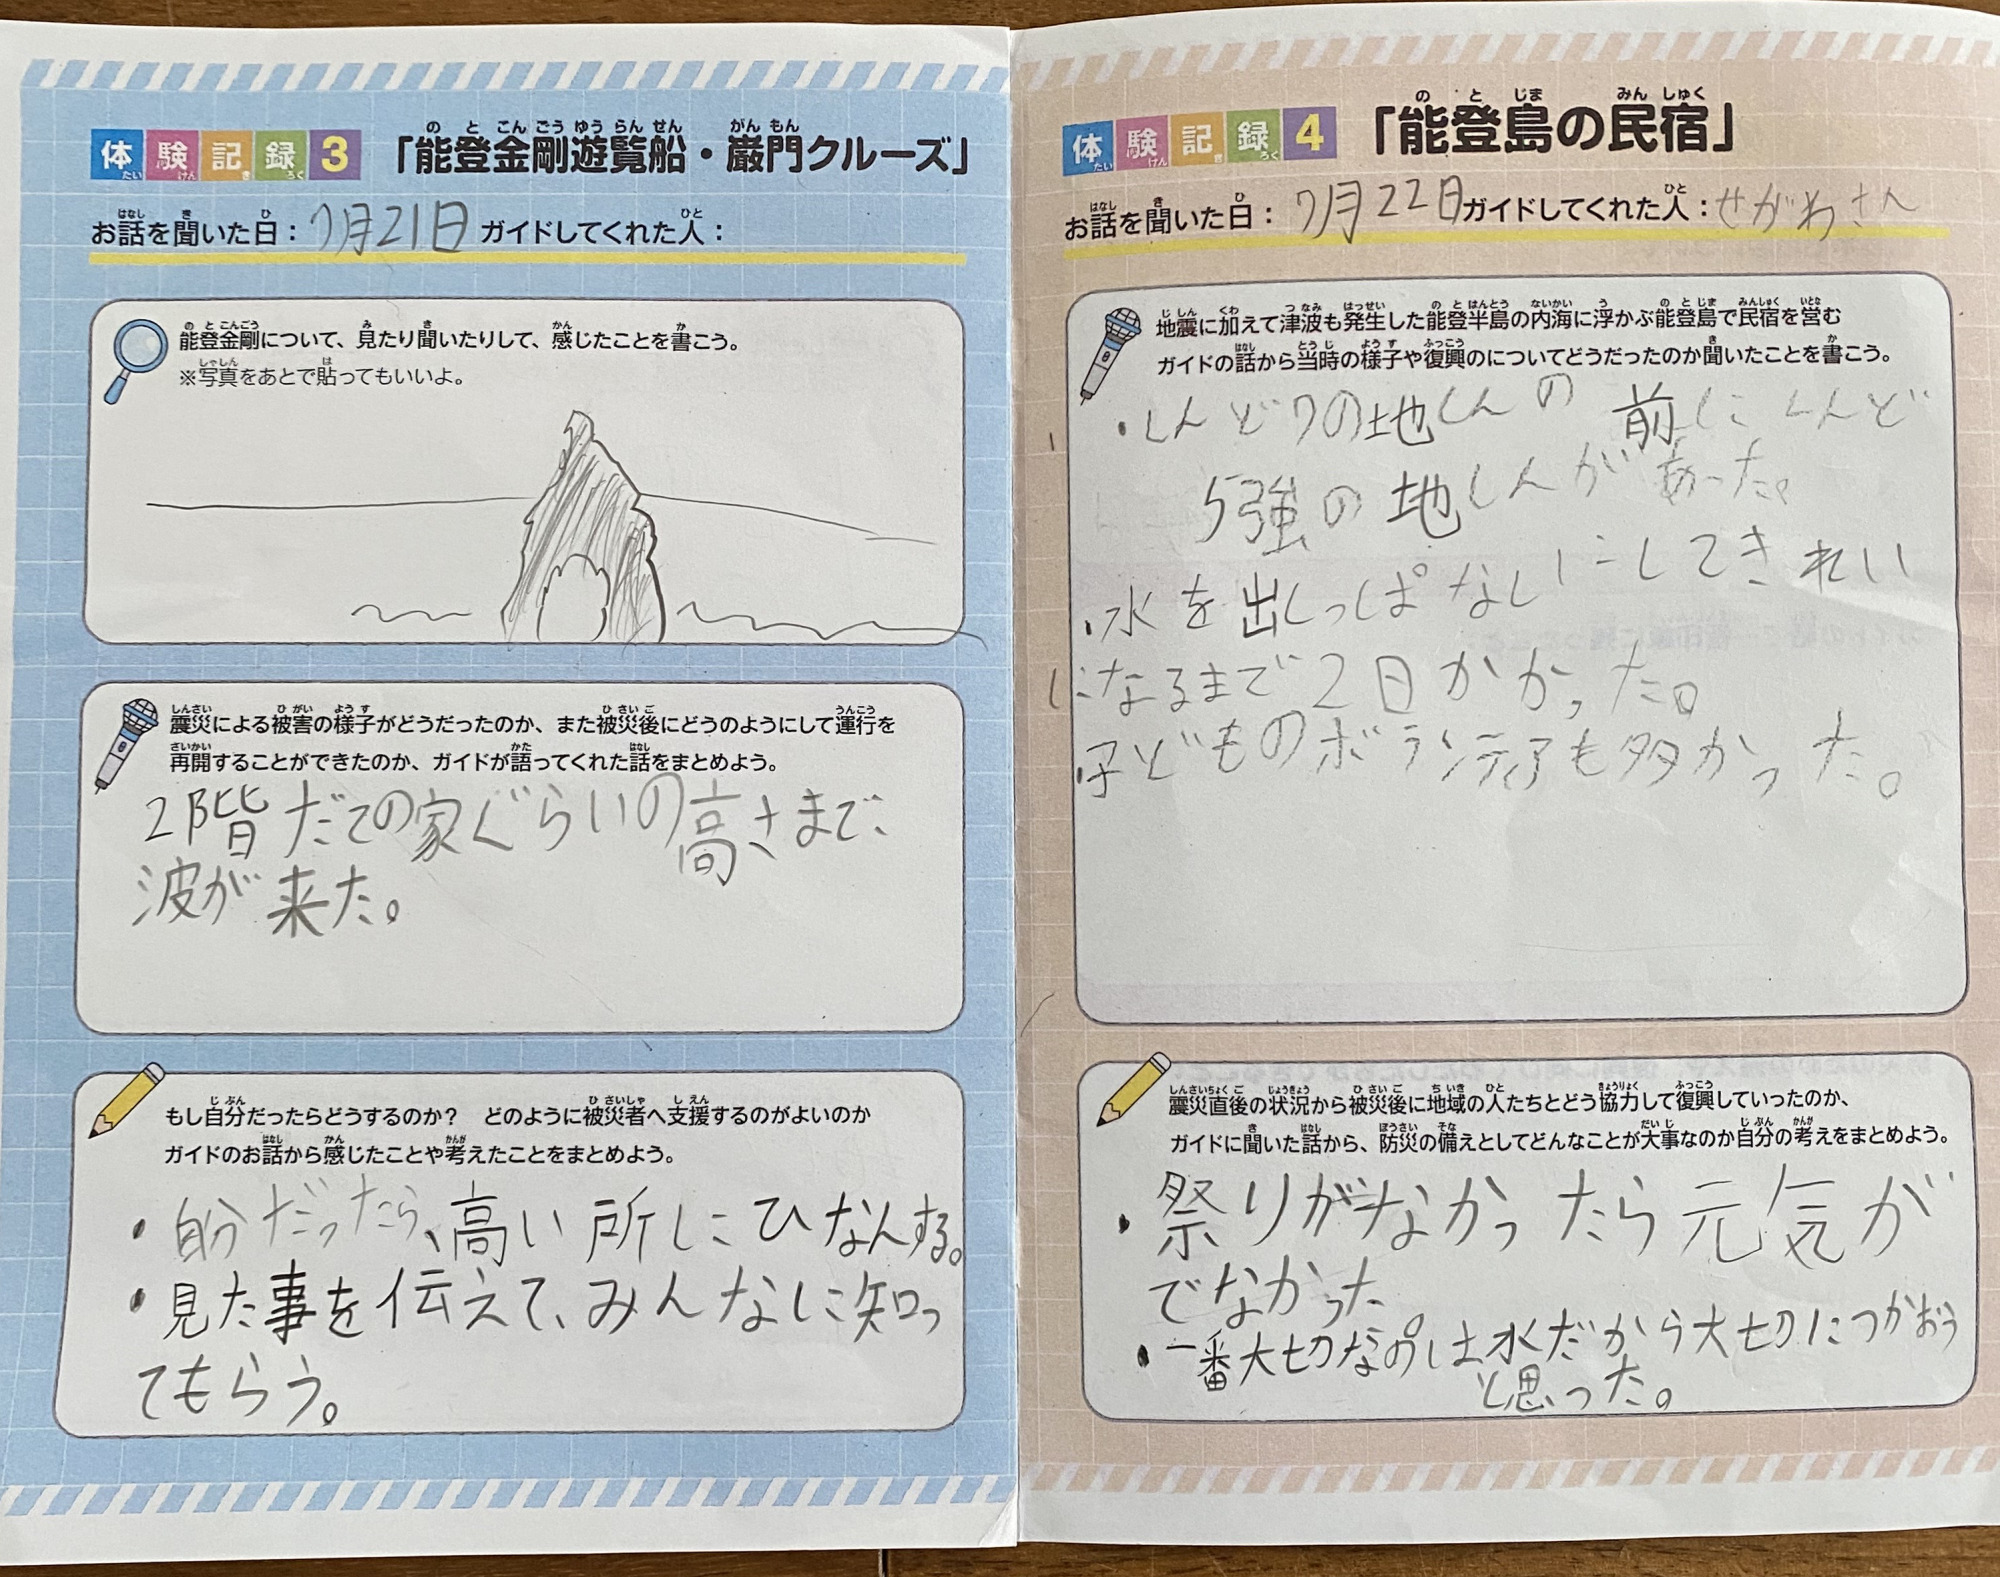 体験記録3 「能登金剛遊覧船・巌門クルーズ」
お話を聞いた日：7月21日 ガイドしてくれた人：
能登金剛について、見たり聞いたりして、感じたことを書こう。
※写真をあとで貼ってもいいよ。
震災による被害の様子がどうだったのか、また被災後にどうのようにして運行を
再開することができたのか、ガイドが語ってくれた話をまとめよう。
2階だての家ぐらいの高さまで、
波が来た。
もし自分だったらどうするのか？　どのように被災者へ支援するのがよいのか
ガイドのお話から感じたことや考えたことをまとめよう。
・自分だったら、高い所にひなんする。
・見た事を伝えて、みんなに知っ
てもらう。
体験記録4 「能登島の民宿」
お話を聞いた日：7月22日 ガイドしてくれた人：せがわさん
地震に加えて津波も発生した能登半島の内海に浮かぶ能登島で民宿を営む
ガイドの話から当時の様子や復興のについてどうだったのか聞いたことを書こう。
・しんど7の地しんの前にしんど
5強の地しんがあった。
・水を出しっぱなしにしてきれい
になるまで2日かかった。
子どものボランティアも多かった。
震災直後の状況から被災後に地域の人たちとどう協力して復興していったのか、
ガイドに聞いた話から、防災の備えとしてどんなことが大事なのか自分の考えをまとめよう。
・祭りがなかったら元気が
でなかった。
・一番大切なのは水だから大切につかおう
と思った。